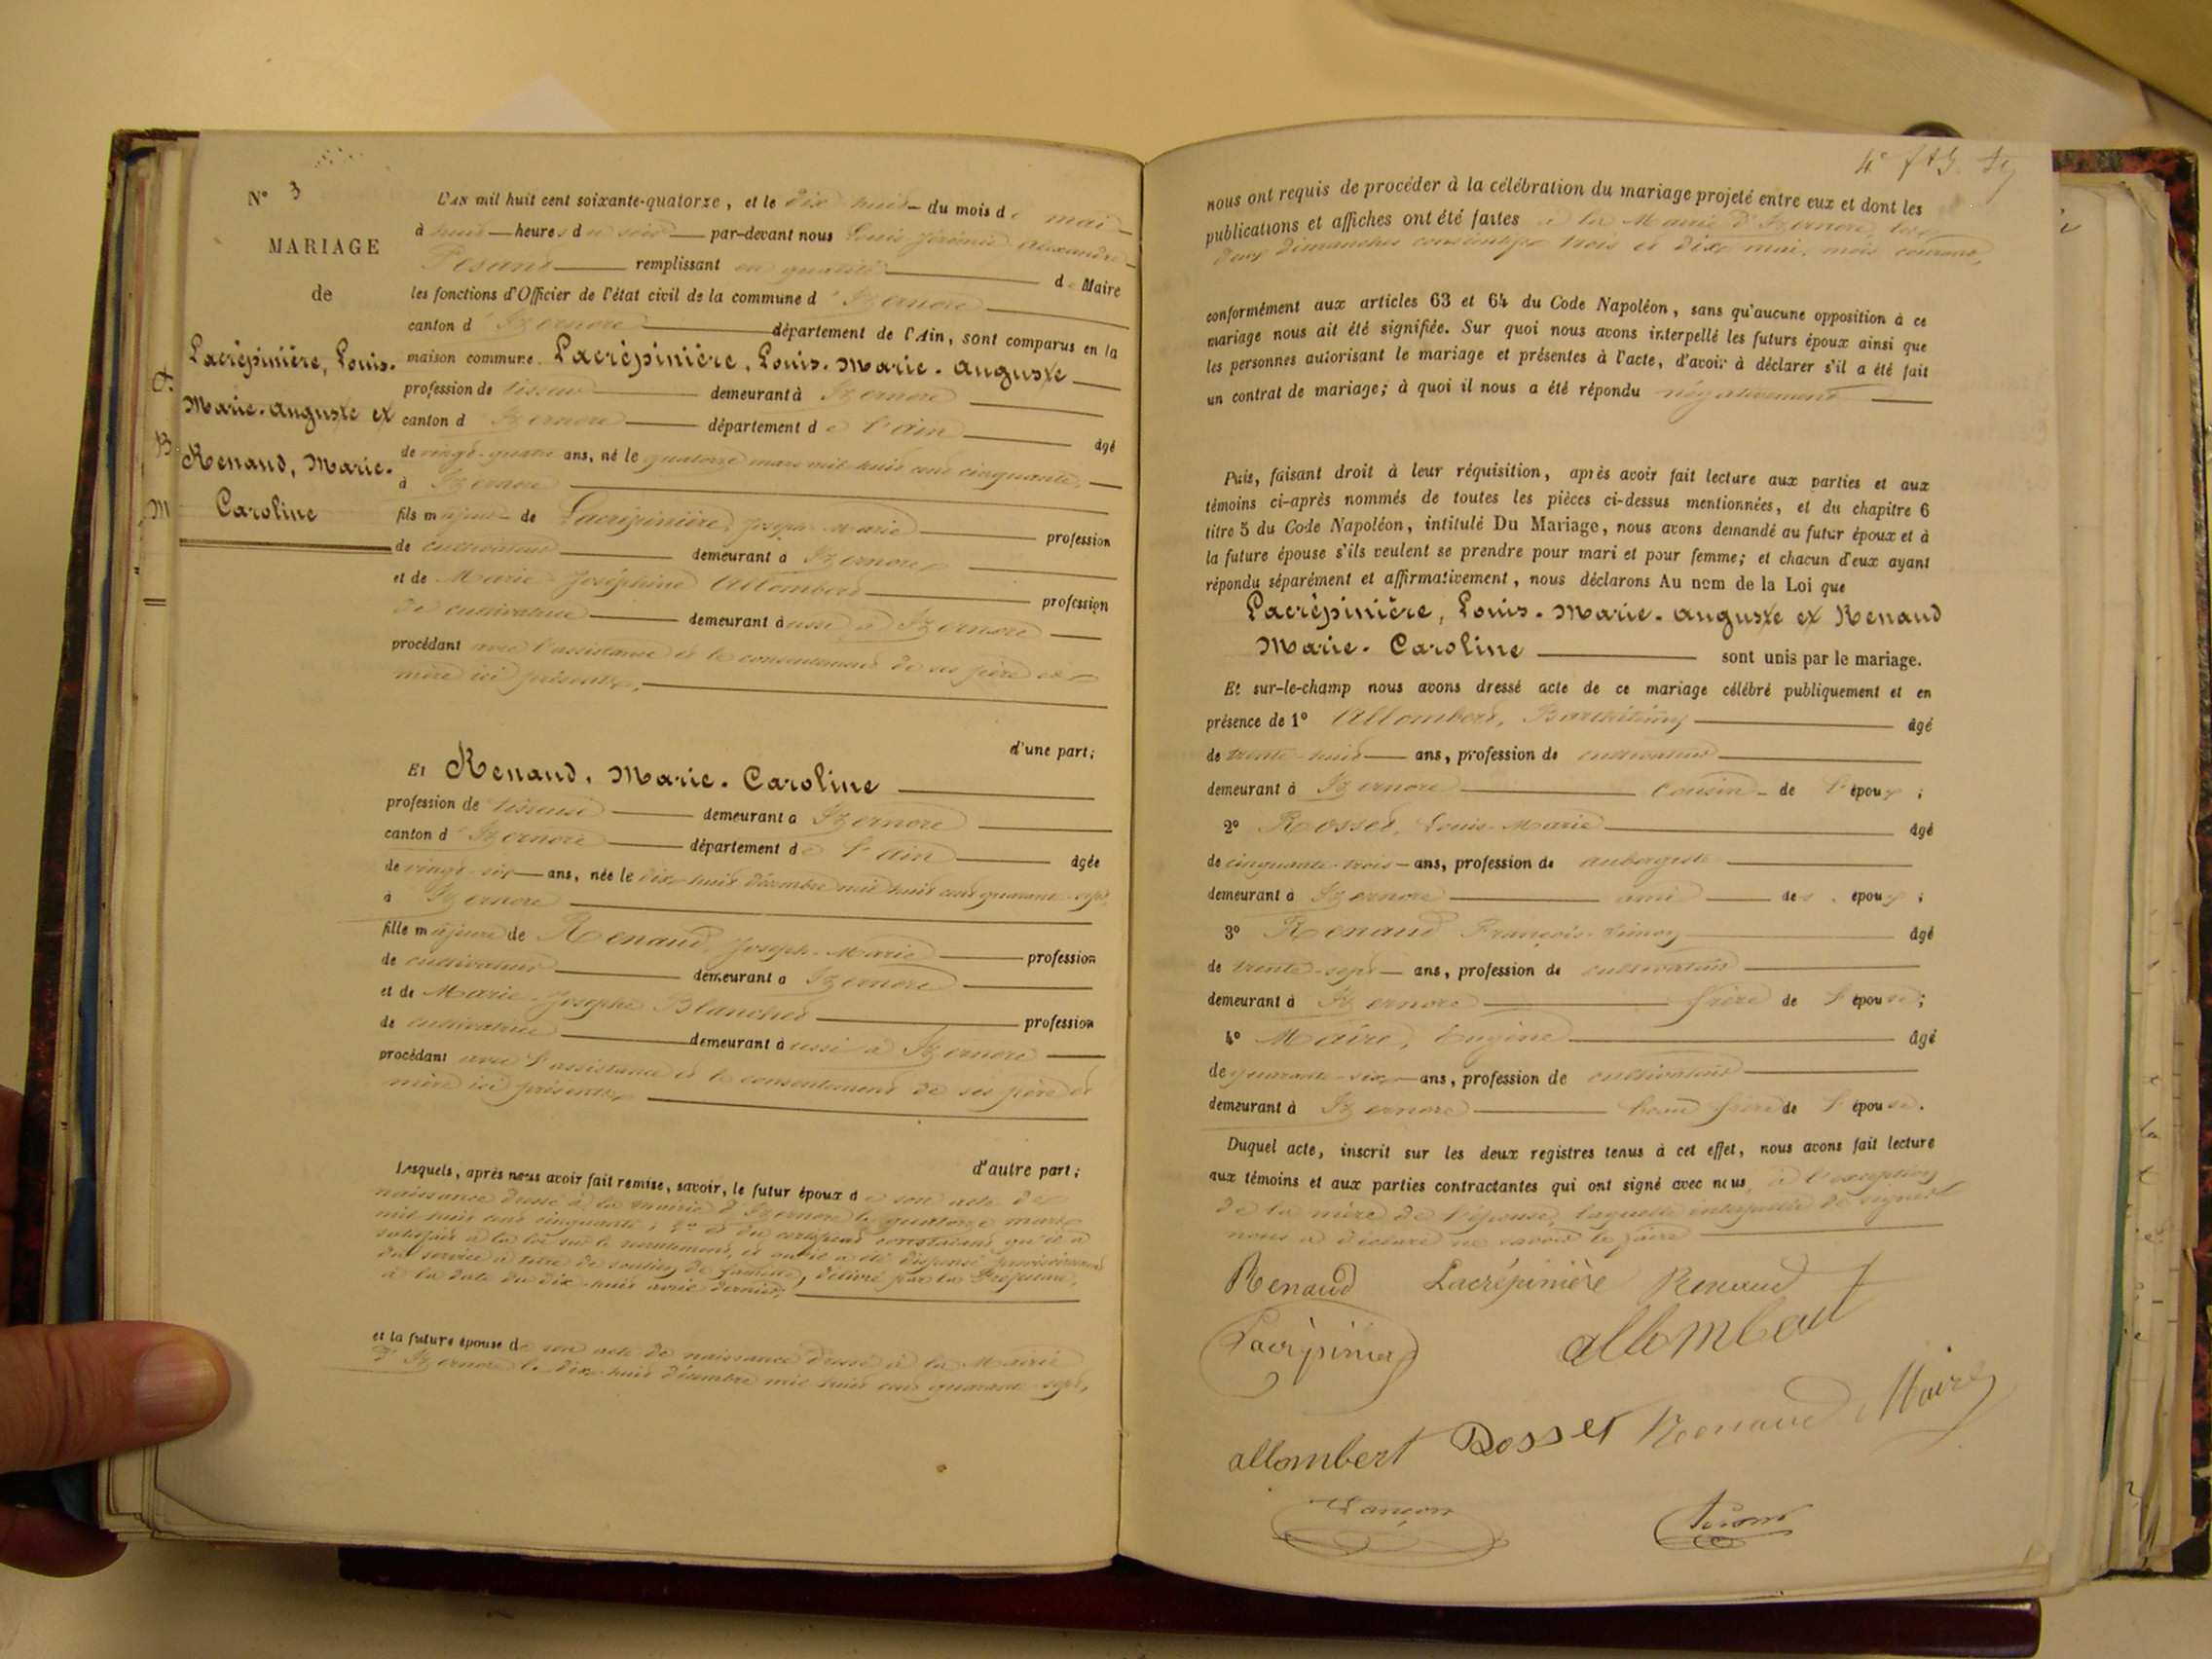 N° 3
MARIAGE
de
Lacrépinière, Louis.
Marie. Auguste et
Renaud, Marie.
Caroline
L'AN mil huit cent soixante-quatorze, et le dix huit du mois de mai
à huit heures du soir par-devant nous Louis Jérémie Alexandre
remplissant en qualité de Maire
les fonctions d'Officier de l'état civil de la commune d'Izernore
canton d'Izernore département de l'Ain, sont comparus en la
maison commune Lacrépinière, Louis. Marie. Auguste
profession de tisseur demeurant à Izernore
canton d'Izernore département de l'Ain âgé
de vingt-quatre ans, né le quatorze mars mil huit cent cinquante,
à Izernore
fils majeur de Lacrépinière, Joseph Marie profession
de cultivateur demeurant à Izernore
et de Marie Joséphine Allombert profession
de cultivatrice demeurant aussi à Izernore
procédant avec l'assistance et le consentement de ses père et
mère ici présents,
d'une part;
Et Renaud, Marie. Caroline
profession de tisseuse demeurant à Izernore
canton d'Izernore département de l'Ain âgée
de vingt-six ans, née le dix-huit décembre mil huit cent quarante-sept
à Izernore
fille majeure de Renaud, Joseph-Marie profession
de cultivateur demeurant à Izernore
et de Marie Josephe Blanchet profession
de cultivatrice demeurant aussi à Izernore
procédant avec l'assistance et le consentement de ses père et
mère ici présents,
d'autre part;
Lesquels, après nous avoir fait remise, savoir, le futur époux de son acte de
naissance dressé à la mairie d'Izernore le quatorze mars
mil huit cent cinquante, 2° et du certificat constatant qu'il a
satisfait à la loi sur le recrutement, et qu'il a été dispensé provisoirement
du service à titre de soutien de famille, délivré par la Préfecture,
à la date du dix-huit avril dernier,
et la future épouse de son acte de naissance dressé à la Mairie
d'Izernore le dix-huit décembre mil huit cent quarante-sept,
nous ont requis de procéder à la célébration du mariage projeté entre eux et dont les
publications et affiches ont été faites à la Mairie d'Izernore, les
deux dimanches consécutifs trois et dix mai, mois courant,
conformément aux articles 63 et 64 du Code Napoléon, sans qu'aucune opposition à ce
mariage nous ait été signifiée. Sur quoi nous avons interpellé les futurs époux ainsi que
les personnes autorisant le mariage et présentes à l'acte, d'avoir à déclarer s'il a été fait
un contrat de mariage; à quoi il nous a été répondu négativement
Puis, faisant droit à leur réquisition, après avoir fait lecture aux parties et aux
témoins ci-après nommés de toutes les pièces ci-dessus mentionnées, et du chapitre 6
titre 5 du Code Napoléon, intitulé Du Mariage, nous avons demandé au futur époux et à
la future épouse s'ils veulent se prendre pour mari et pour femme; et chacun d'eux ayant
répondu séparément et affirmativement, nous déclarons Au nom de la Loi que
Lacrépinière, Louis. Marie. Auguste et Renaud
Marie. Caroline sont unis par le mariage.
Et sur-le-champ nous avons dressé acte de ce mariage célébré publiquement et en
présence de 1° Allombert, Barthélemy âgé
de trente-huit ans, profession de cultivateur
demeurant à Izernore cousin de l'époux;
2° Rosset, Louis-Marie âgé
de cinquante-trois ans, profession de aubergiste
demeurant à Izernore ami des époux;
3° Renaud François âgé
de trente-sept ans, profession de cultivateur
demeurant à Izernore frère de l'épouse;
4° Maire, Eugène âgé
de quarante-six ans, profession de cultivateur
demeurant à Izernore beau frère de l'épouse.
Duquel acte, inscrit sur les deux registres tenus à cet effet, nous avons fait lecture
aux témoins et aux parties contractantes qui ont signé avec nous, à l'exception
de la mère de l'épouse, laquelle interpellée de signer
nous a déclaré ne savoir le faire
Renaud Lacrépinière Renaud
Lacrépinière
allombert Rosset Renaud Maire